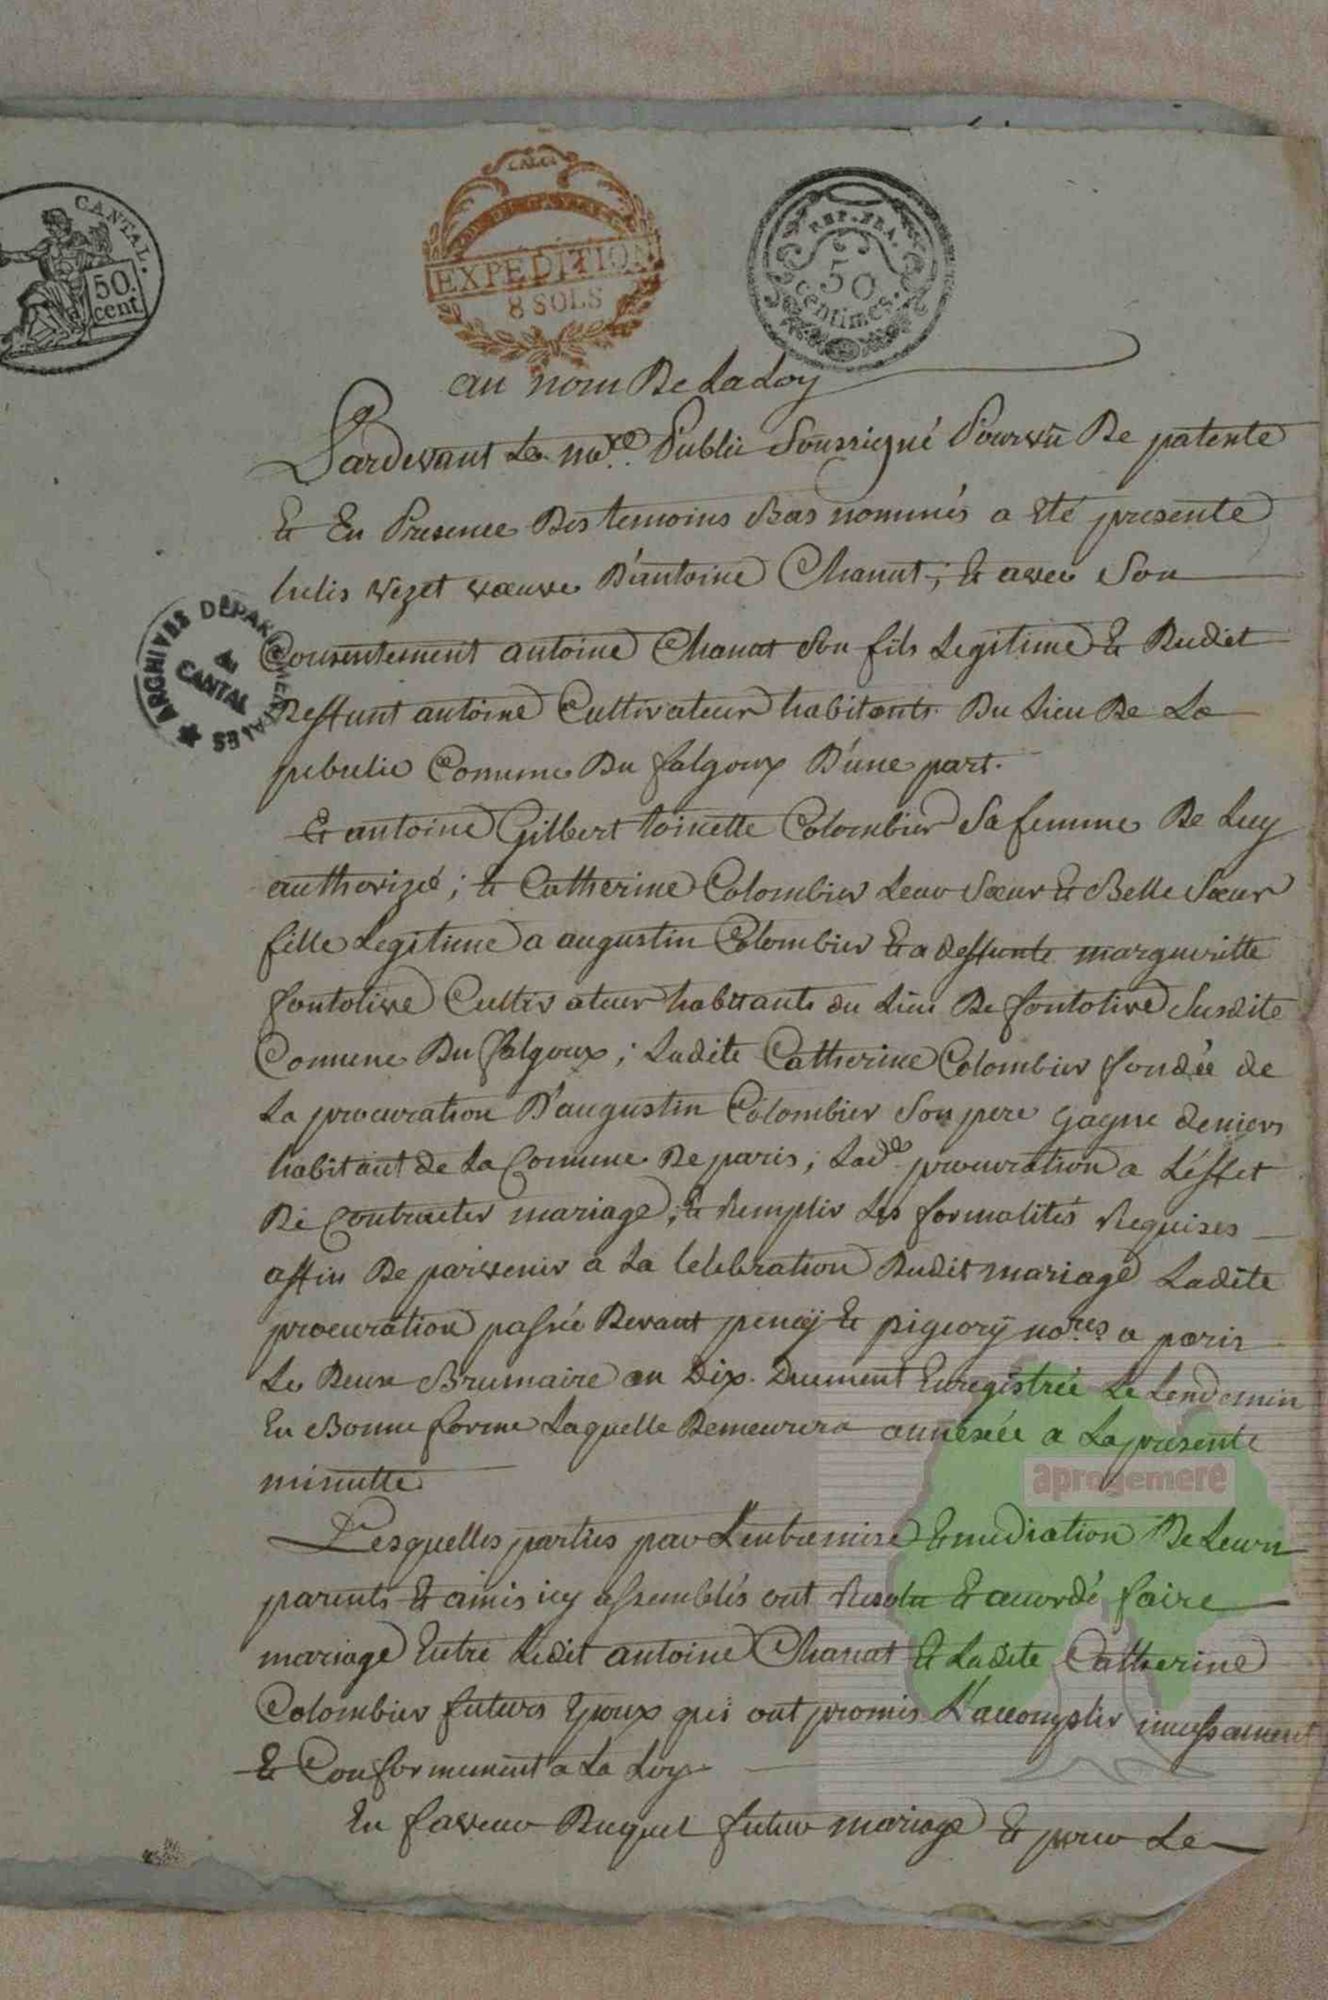 CANTAL.
50.
cent
EXPEDITION
8 SOLS
REP. FRA.
50
centimes.
au nom De La Loy
Pardevant Le no.re Public Soussigné Pourvû De patente
Et En Presence Des temoins Bas nommés a Eté presente
vezet vœuve D'antoine Chanut; Et avec Son
Consentement antoine Chanat Son fils Legitime Et Dudit
Deffunt antoine Cultivateur habitants Du Lieu De La
Comune Du falgoux D'une part.
Et antoine Gilbert toinette Colombier Sa femme De Luy
authorizé; Et Catherine Colombier Leur Sœur Et Belle Sœur
fille Legitime a augustin Colombier Et a deffunte margueritte
fontolive Cultivateur habitants du Lieu De fontolive Susdite
Comune Du falgoux; Ladite Catherine Colombier fondée de
La procuration D'augustin Colombier Son pere gagne deniers
habitant de La Comune De paris; Lad.e procuration a L'éffet
De Contracter mariage; Et Remplir Les formalités Requises
affin De parvenir a La Celebration Dudit mariage Ladite
procuration passée Devant Et no.res a paris
Le Deux Brumaire an Dix. Duement Enregistrée Le Lendemin
En Bonne forme Laquelle Demeurera annéxée a La presente
minutte
Lesquelles parties par L'entremise Et mediation De Leurs
parents Et amis icy assemblés ont Resolu Et acordé faire
mariage Entre Ledit antoine Chanat Et Ladite Catherine
Colombier futurs Epoux qui ont promis L'accomplir incessament
Et Conformement a La Loy
En faveur Duquel futur mariage Et pour Le
ARCHIVES DEPARTEMENTALES
du
CANTAL
aprogemere